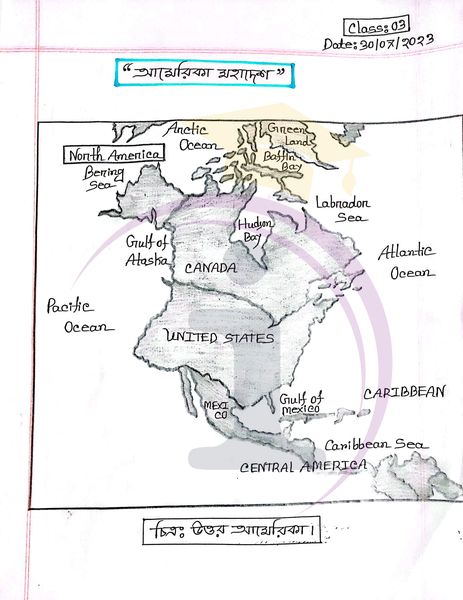 Class: 03
Date: 30/07/2023
"আমেরিকা মহাদেশ"
Arctic
Ocean
Green
Land
Baffin
Bay
North America
Bering
Sea
Labrador
Sea
Hudson
Bay
Gulf of
Alaska
CANADA
Atlantic
Ocean
Pacific
Ocean
UNITED STATES
MEXI
CO
Gulf of
mexico
CARIBBEAN
Caribbean Sea
CENTRAL AMERICA
চিত্রঃ উত্তর আমেরিকা।